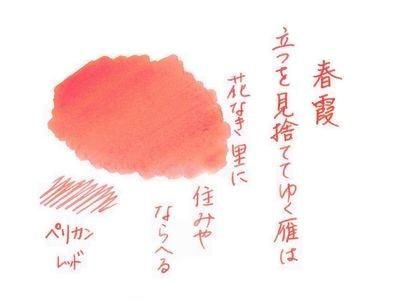 春霞
立つを見捨ててゆく雁は
花なき里に
住みや
ならへる
ペリカン
レッド